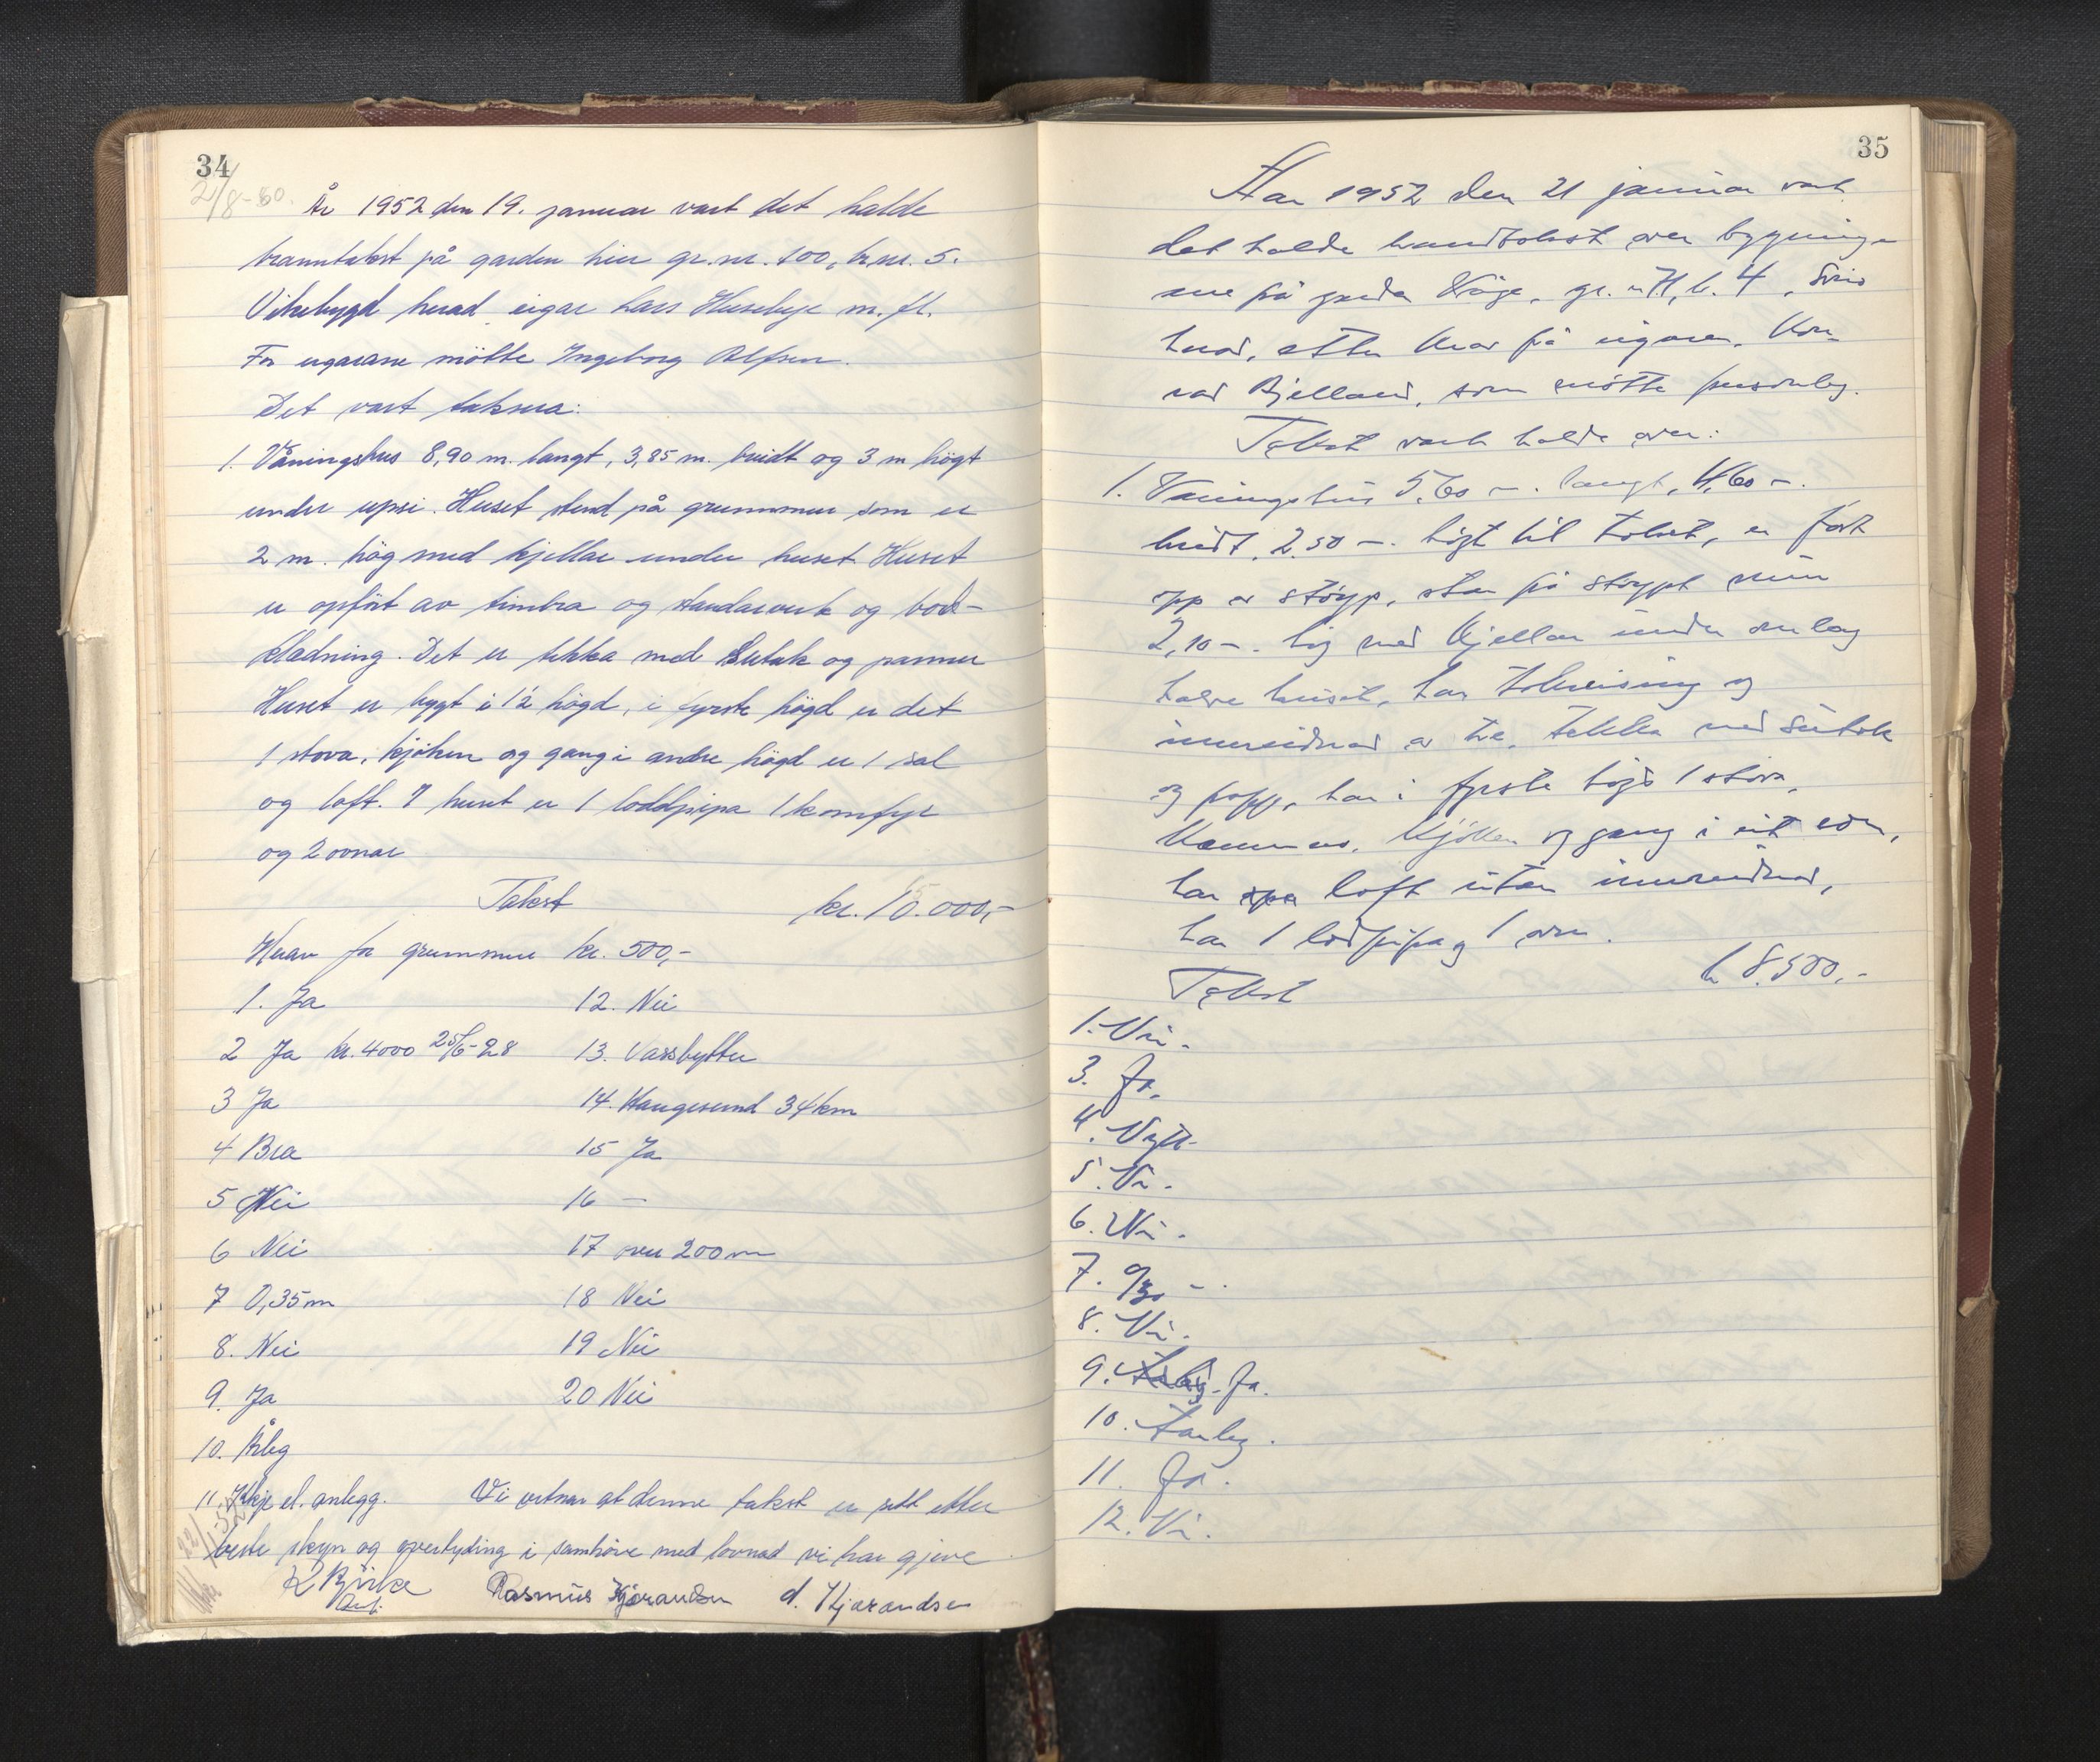 34
2/8-60.
År 1952 den 19. januar vart det halde
branntakst på garden hier gr.nr. 100, br.nr. 5.
Vikebygd herad eigar Lars Husebye m. fl.
For eigarane mötte Ingeborg Alfsen.
Det vart taksera:
1. Våningshus 8,90 m. langt, 3,85 m. breidt og 3 m högt
under upsi. Huset stend på grunnmur som er
2 m. hög med kjellar under huset. Huset
er opfört av timbra og standarverk og bord-
kledning. Det er tekka med Sutak og pannur
Huset er bygt i 1½ högd, i fyrste högd er det
1 stova, kjöken og gang i andre högd er 1 sal
og loft. I huset er 1 loddpipa 1 komfyr
og 2 ovnar
Takst kr. 10.000,-
Herav for grunnmur kr. 500,-
1. Ja 12. Nei
2 Ja kr. 4000 25/6-28 13. Vassbytter
3 Ja 14. Haugesund 34 km
4 Bra 15 Ja
5 Nei 16 —
6 Nei 17 over 200 m
7 0,35 m 18 Nei
8. Nei 19 Nei
9. Ja 20 Nei
10. Årleg
11. Ikkje el. anlegg. Vi vitnar at denne takst er sett etter
beste skyn og overtyding i samhöve med lovnad vi har gjeve
Rasmus Kjørandsen d. Kjarandsen
35
Aar 1952 den 21 januar vart
det halde brandtakst over bygninga
ne på garden gr. n 71, b. 4,
herad, etter krav på eigaren, Kon-
rad Bjelland, som møtte personleg.
Takst vart halde over:
1. Vaaningshus 5,60 m. langt, 4,60 m.
breidt, 2,50 m. høgt til taket, er ført
opp av støyp, star på støypt mur
2,10 m. høg med kjellar under omlag
halve huset, har takreising og
innreidnad av tre, tekka med sutak
og papp, har i fyrste høgd 1 stova,
kammers, kjøken og gang i eit rom,
har loft utan innreidnad,
har 1 lodpipa og 1 ovn.
Takst kr 8.500,-
1. Nei.
3. Ja.
4. Nytt.
5. Nei.
6. Nei.
7. 0,30 m.
8. Nei.
9. Ja.
10. Aarleg.
11. Ja.
12. Nei.